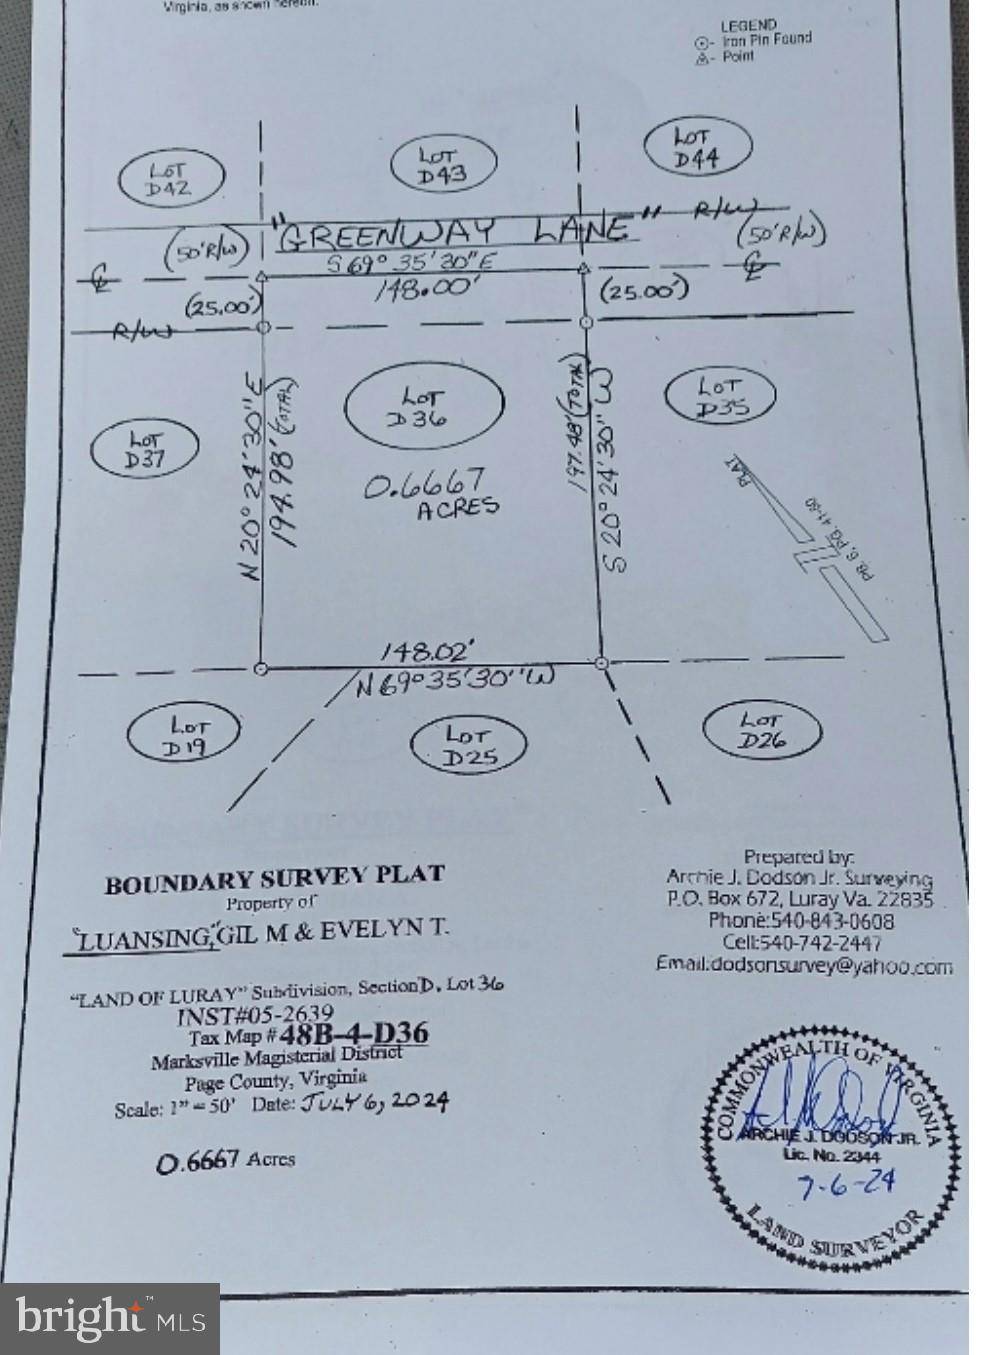 Virginia, as shown hereon.
LEGEND
- Iron Pin Found
- Point
LOT
D42
LOT
D43
LOT
D44
"GREENWAY LANE"
R/W
(50' R/W)
(50' R/W)
S 69° 35' 30" E
148.00'
(25.00')
(25.00')
R/W
N 20° 24' 30" E
194.98' (TOTAL)
LOT
D36
0.6667
ACRES
197.48' (TOTAL)
S 20° 24' 30" W
LOT
D37
LOT
D35
PLAT
PB. 6, PG. 41-50
148.02'
N 69° 35' 30" W
LOT
D19
LOT
D25
LOT
D26
BOUNDARY SURVEY PLAT
Property of
"LUANSING," GIL M & EVELYN T.
"LAND OF LURAY" Subdivision, Section D, Lot 36
INST#05-2639
Tax Map # 48B-4-D36
Marksville Magisterial District
Page County, Virginia
Scale: 1" = 50' Date: JULY 6, 2024
0.6667 Acres
Prepared by:
Archie J. Dodson Jr. Surveying
P.O. Box 672, Luray Va. 22835
Phone:540-843-0608
Cell:540-742-2447
Email:dodsonsurvey@yahoo.com
COMMONWEALTH OF VIRGINIA
ARCHIE J. DODSON JR.
Lic. No. 2344
7-6-24
LAND SURVEYOR
bright™ MLS